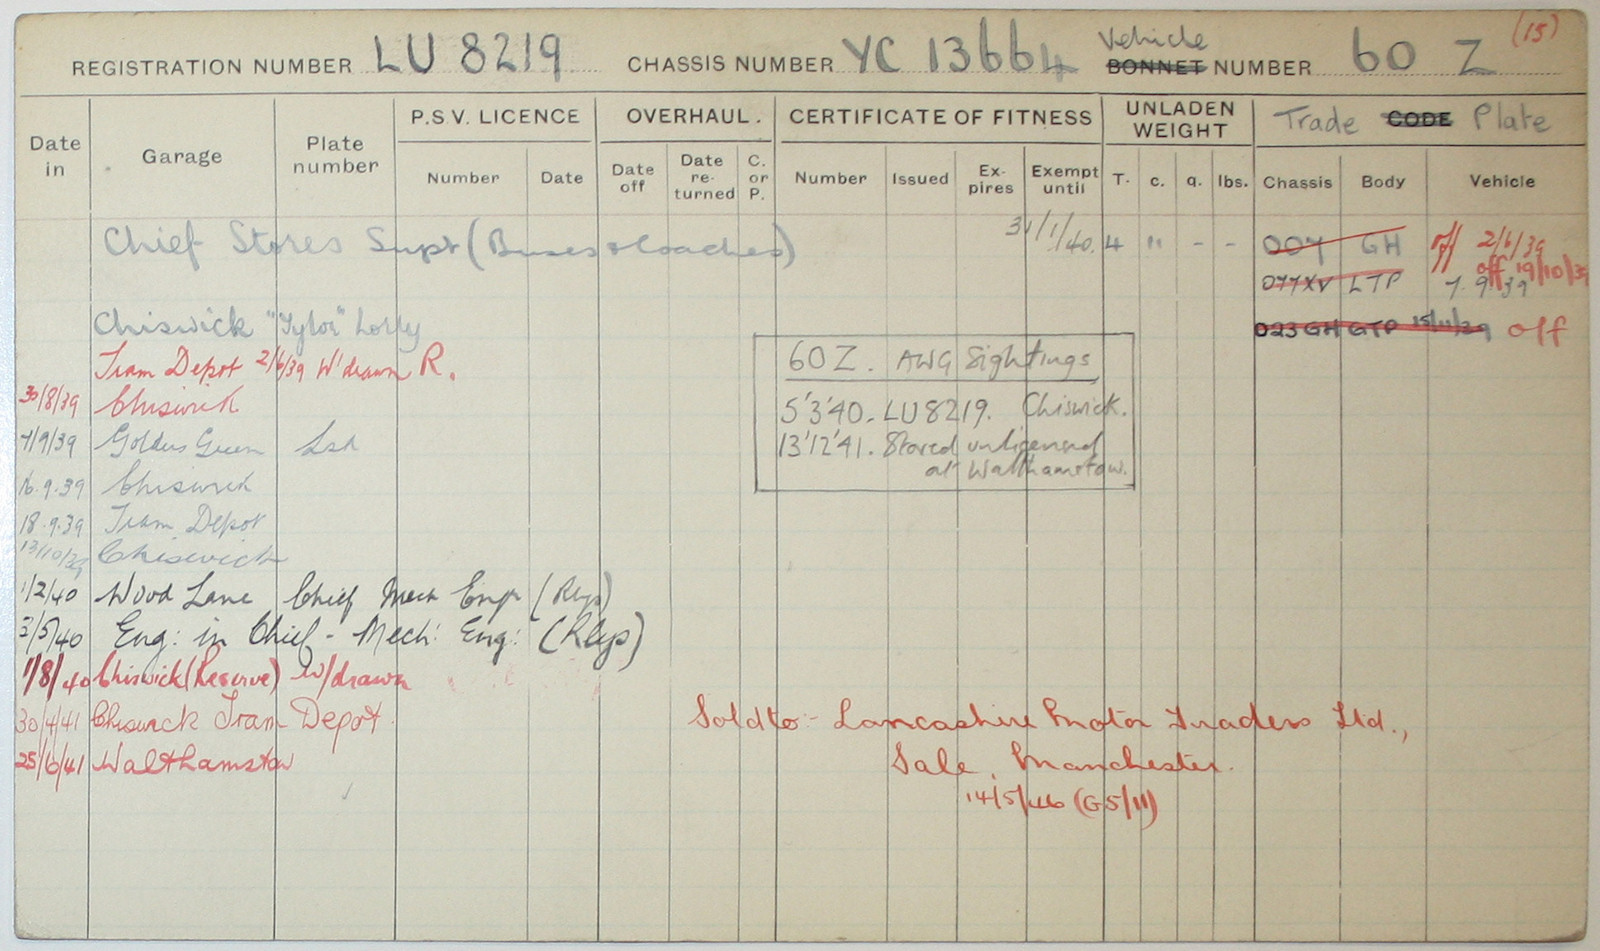 (15)
REGISTRATION NUMBER LU 8219 CHASSIS NUMBER YC 13664 Vehicle BONNET NUMBER 60 Z
Date in Garage Plate number P.S.V. LICENCE OVERHAUL. CERTIFICATE OF FITNESS UNLADEN WEIGHT Trade CODE Plate
Number Date Date off Date re-turned C. or P. Number Issued Ex-pires Exempt until T. c. q. lbs. Chassis Body Vehicle
Chief Stores Supt (Buses & Coaches) 31/1/40. 4 11 - - 007 GH off 2/6/39
077XV LTP 7.9.39 off 19/10/39
Chiswick "Tylor" Lorry 023 GH GTP 15/11/39 off
Tram Depot 2/6/39 W'drawn R.
30/8/39 Chiswick
7/9/39 Golders Green
16.9.39 Chiswick
18.9.39 Tram Depot
13/10/39 Chiswick
60Z. AWG Sightings
5'3'40. LU8219. Chiswick.
13'12'41. Stored unlicensed
at Walthamstow.
1/2/40 Wood Lane Chief Mech Engr (Rlys)
3/5/40 Eng: in Chief - Mech: Eng: (Rlys)
1/8/40 Chiswick (Reserve) w/drawn
30/4/41 Chiswick Tram Depot.
25/6/41 Walthamstow
Sold to:- Lancashire Motor Traders Ltd.,
Sale, Manchester.
14/5/46 (G5/11)